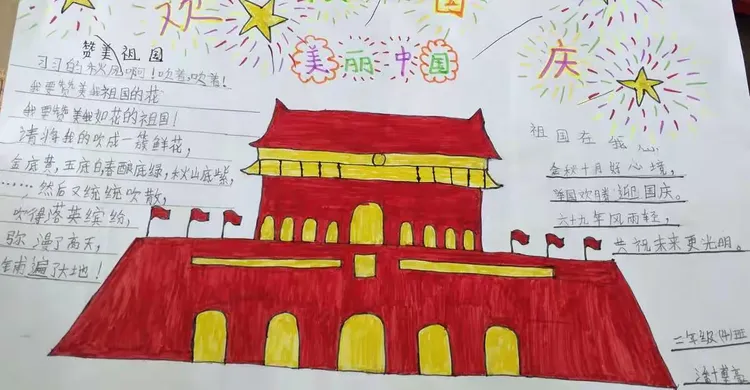 欢 国
美丽中国
庆
赞美祖国
习习的秋风啊!吹着,吹着!
我要赞美我祖国的花
我要赞美我如花的祖国!
请将我的吹成一簇鲜花,
金底黄,玉底白,春酿底绿,秋山底紫,
……然后又统统吹散,
吹得落英缤纷,
弥漫了高天,
铺遍了大地!
祖国在我心
金秋十月好心境,
举国欢腾迎国庆。
六十九年风雨轻,
共祝未来更光明。
二年级(4)班